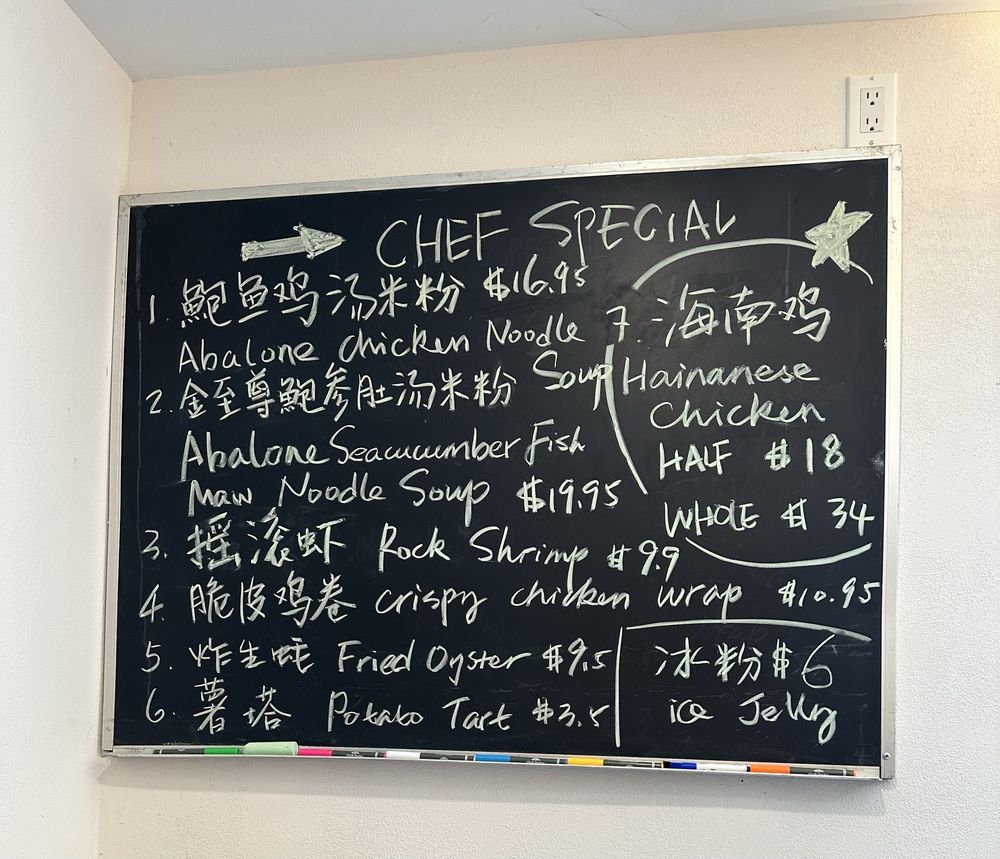 CHEF SPECIAL
1. 鲍鱼鸡汤米粉 $16.95
Abalone chicken Noodle
Soup
2. 金至尊鲍参肚汤米粉
Abalone Seacucumber Fish
Maw Noodle Soup $19.95
3. 摇滚虾 Rock Shrimp $9.9
4. 脆皮鸡卷 crispy chicken wrap $10.95
5. 炸生蚝 Fried Oyster $9.5
6. 薯塔 Potato Tart $3.5
7. 海南鸡
Hainanese
chicken
HALF $18
WHOLE $34
冰粉 $6
ice Jelly